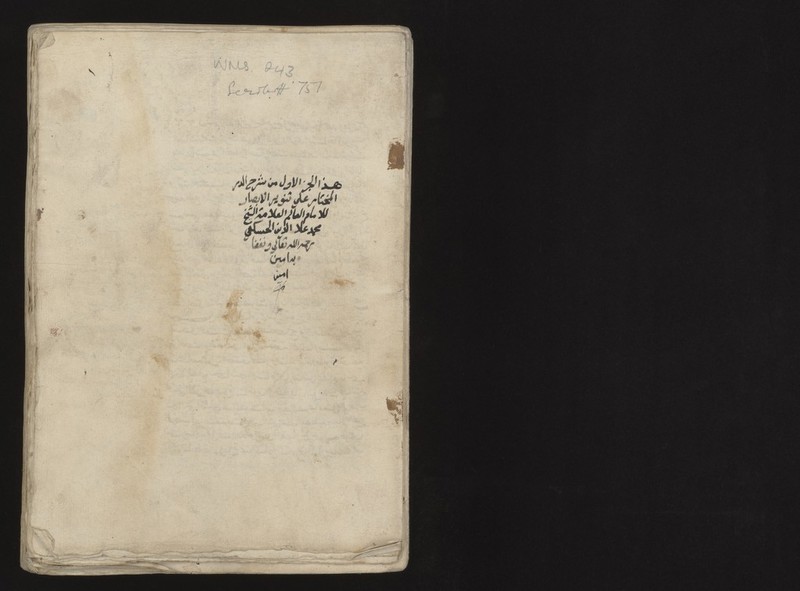 WMS. 243
757
هذا الجزء الاول من شرح الدر
المختار على تنوير الابصار
للامام العالم العلامة الشيخ
محمد علا الدين الحسكفي
رحمه الله تعالى ونفعنا
به امين
امين